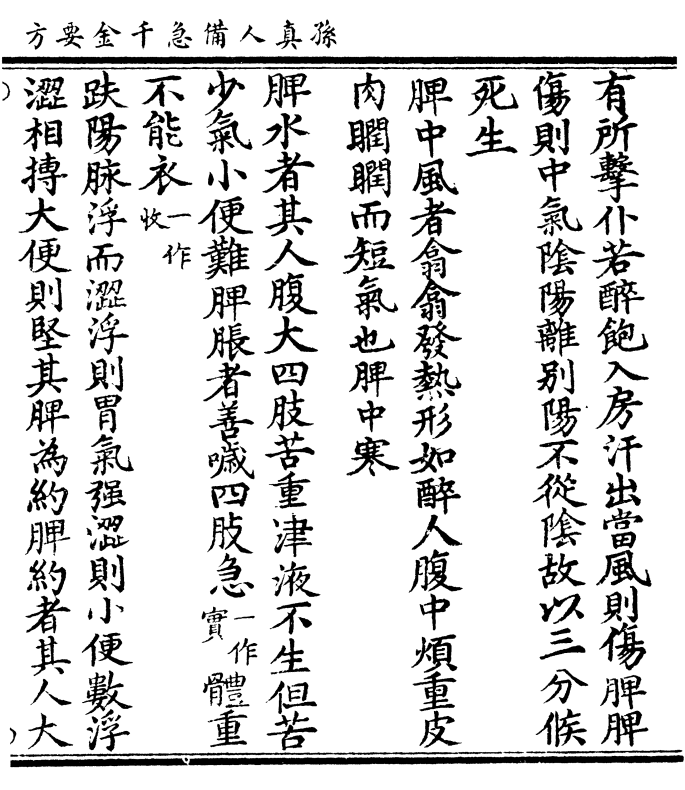 孫真人備急千金要方
有所擊仆若醉飽入房汗出當風則傷脾脾
傷則中氣陰陽離别陽不從陰故以三分候
死生
脾中風者翕翕發熱形如醉人腹中煩重皮
肉瞤瞤而短氣也脾中寒
脾水者其人腹大四肢苦重津液不生但苦
少氣小便難脾脹者善噦四肢急一作實體重
不能衣一作收
趺陽脉浮而澀浮則胃氣强澀則小便數浮
澀相摶大便則堅其脾為約脾約者其人大